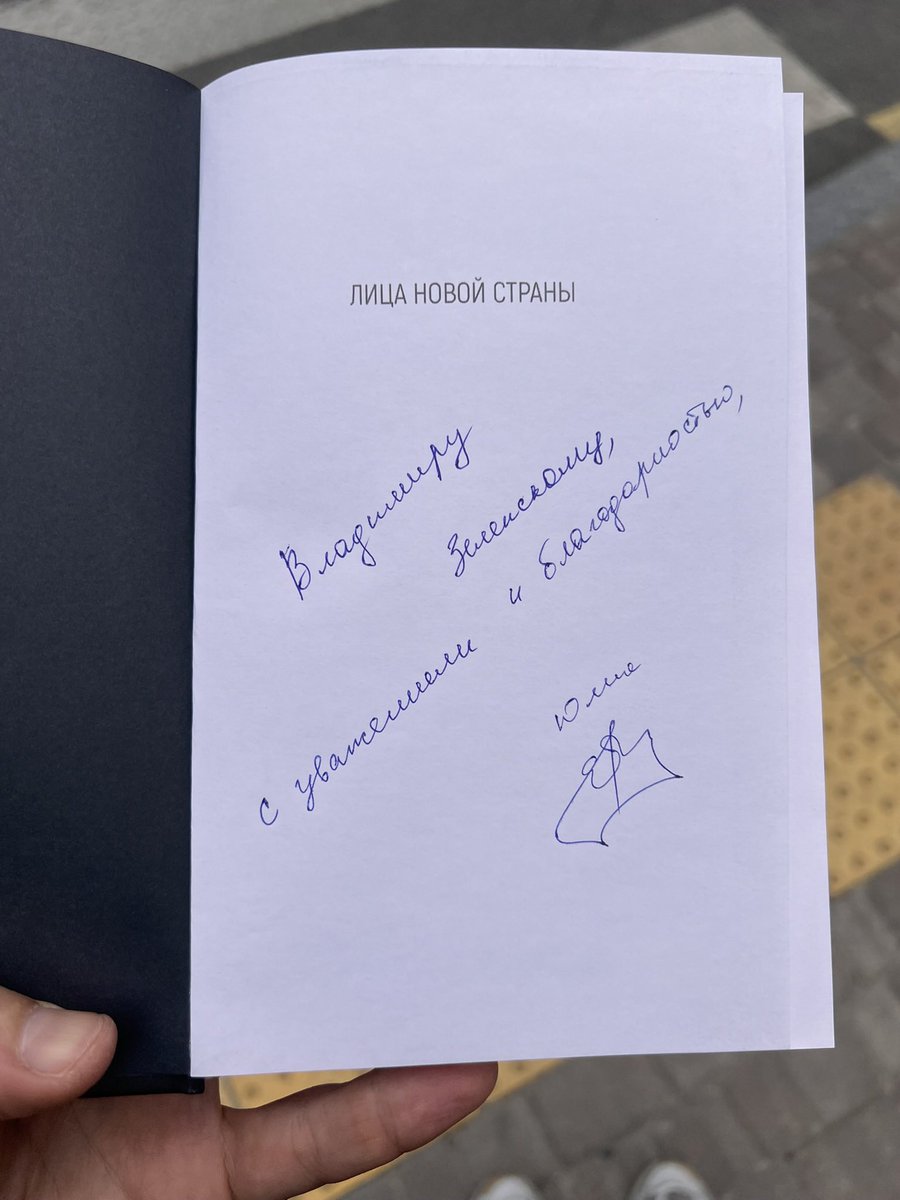 ЛИЦА НОВОЙ СТРАНЫ
Владимиру
Зеленскому,
с уважением и благодарностью,
Юлия